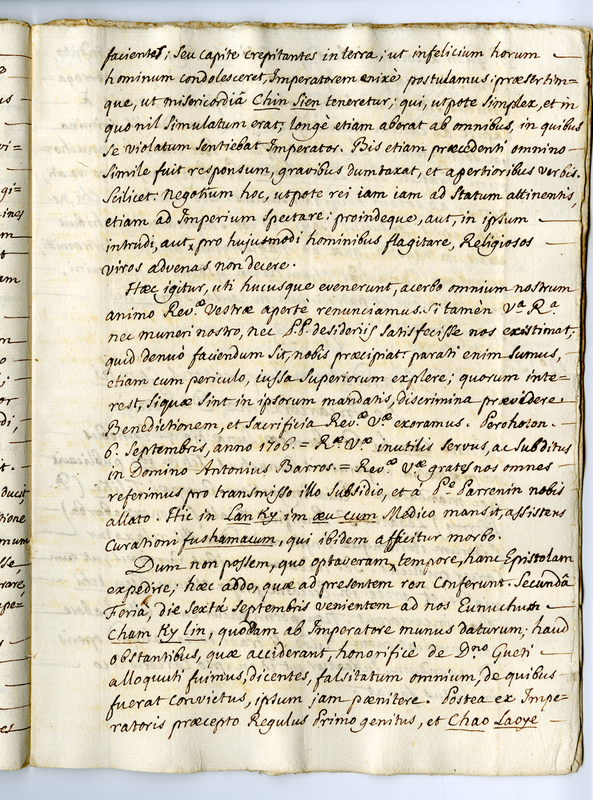 facientes; seu capite crepitantes in terra; ut infelicium horum
hominum condolesceret, Imperatorem enixè postulamus: præsertim=
que, ut misericordiâ Chin Sien teneretur; qui, utpote simplex, et in
quo nil simulatum erat; longè etiam aberat ab omnibus, in quibus
se violatum sentiebat Imperator. Bis etiam præcedenti omnino
simile fuit responsum, gravibus dumtaxat, et apertioribus verbis.
Scilicet: Negotium hoc, utpote rei iam iam ad Statum attinentis,
etiam ad Imperium spectare: proindeque, aut, in ipsum
intrudi, aut, pro hujusmodi hominibus flagitare, Religiosos
viros advenas non decere.
Hæc igitur, uti hucusque evenerunt, acerbo omnium nostrum
animo Rev.æ Vestræ apertè renunciamus. Si tamèn V.a R.a
nec muneri nostro, nec P.P. desiderijs satisfecisse nos existimat;
quid denuò faciendum sit, nobis præcipiat: parati enim sumus,
etiam cum periculo, iussa Superiorum explere; quorum inte=
rest, siquæ sint in ipsorum mandatis, discrimina prævidere.
Benedictionem, et Sacrificia Rev.æ V.æ exoramus. Porohoton.
6.a Septembris, anno 1706. = R.æ V.æ inutilis servus, ac Subditus
in Domino Antonius Barros. = Rev.æ V.æ grates nos omnes
referimus pro transmisso illo Subsidio, et à P.e Parrenin nobis
allato. Hic in Lan Ky im æu cum Medico mansit, assistens
curationi fushamacum, qui ibidem afficitur morbo.
Dum non possem, quo optaveram, tempore, hanc Epistolam
expedire; hæc addo, quæ ad presentem rem conferunt. Secundâ
Feriâ, die sextâ Septembris venientem ad nos Eunuchum
Cham Ky lin, quoddam ab Imperatore munus daturum; haud
obstantibus, quæ acciderant, honorificè de D.no Gueti
alloquuti fuimus, dicentes, falsitatum omnium, de quibus
fuerat convictus, ipsum jam pænitere. Postea ex Impe=
ratoris præcepto Regulus Primogenitus, et Chao Laoye